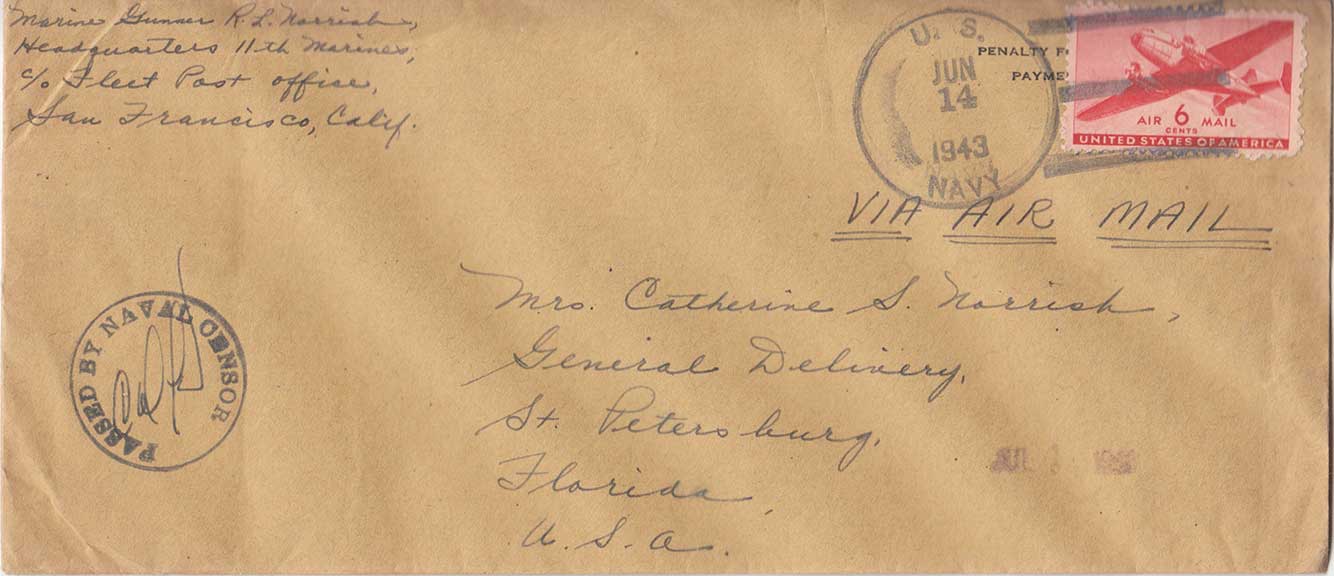 Marine Gunner R. L. Norrish,
Headquarters 11th Marines,
c/o Fleet Post office,
San Francisco, Calif.
U. S.
JUN
14
1943
NAVY
PENALTY F
PAYME
AIR 6 MAIL
CENTS
UNITED STATES OF AMERICA
VIA AIR MAIL
PASSED BY NAVAL CENSOR
Mrs. Catherine S. Norrish,
General Delivery,
St. Petersburg,
Florida,
U. S. A.